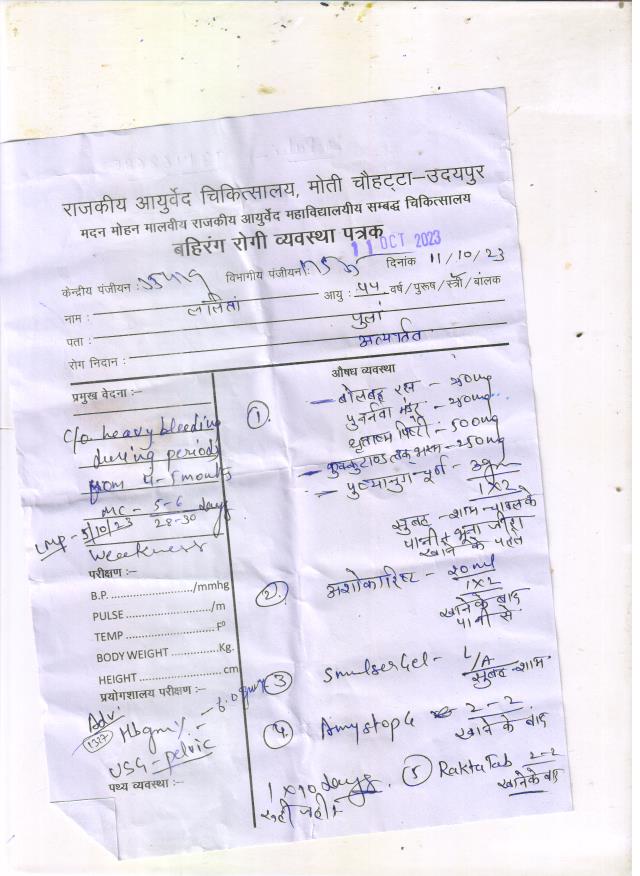 राजकीय आयुर्वेद चिकित्सालय, मोती चौहट्टा–उदयपुर
मदन मोहन मालवीय राजकीय आयुर्वेद महाविद्यालयीय सम्बद्ध चिकित्सालय
बहिरंग रोगी व्यवस्था पत्रक
11 OCT 2023
केन्द्रीय पंजीयन : विभागीय पंजीयन : दिनांक 11/10/23
नाम : ललिता आयु : 44 वर्ष / पुरूष / स्त्री / बालक
पता : पुलां
रोग निदान : अत्यार्तव
प्रमुख वेदना :–
औषध व्यवस्था
C/o heavy bleeding
during periods
from 4-5 months
MC - 5-6 days
28-30
LMP - 5/10/23
Weakness
① बोलबद्ध रस - 250mg
पुनर्नवा मंडूर - 250mg
पिष्टी - 500mg
कुक्कुटाण्ड त्वक् भस्म - 250mg
पुष्यानुग चूर्ण - 3gm
1x2
सुबह - शाम - चावल के
पानी व भुना जीरा
खाने के पहले
परीक्षण :–
B.P. /mmhg
PULSE /m
TEMP F°
BODY WEIGHT Kg.
HEIGHT cm
② अशोकारिष्ट - 20ml
1x2
खाने के बाद
पानी से
③ Gel - L/A
सुबह - शाम
प्रयोगशालय परीक्षण :–
Adv:
1317
Hbgm% -
USG - pelvic
④ Amystop G 2-2
खाने के बाद
पथ्य व्यवस्था :–
1 x 10 days
⑤ Rakta Tab 2-2
खाने के बाद